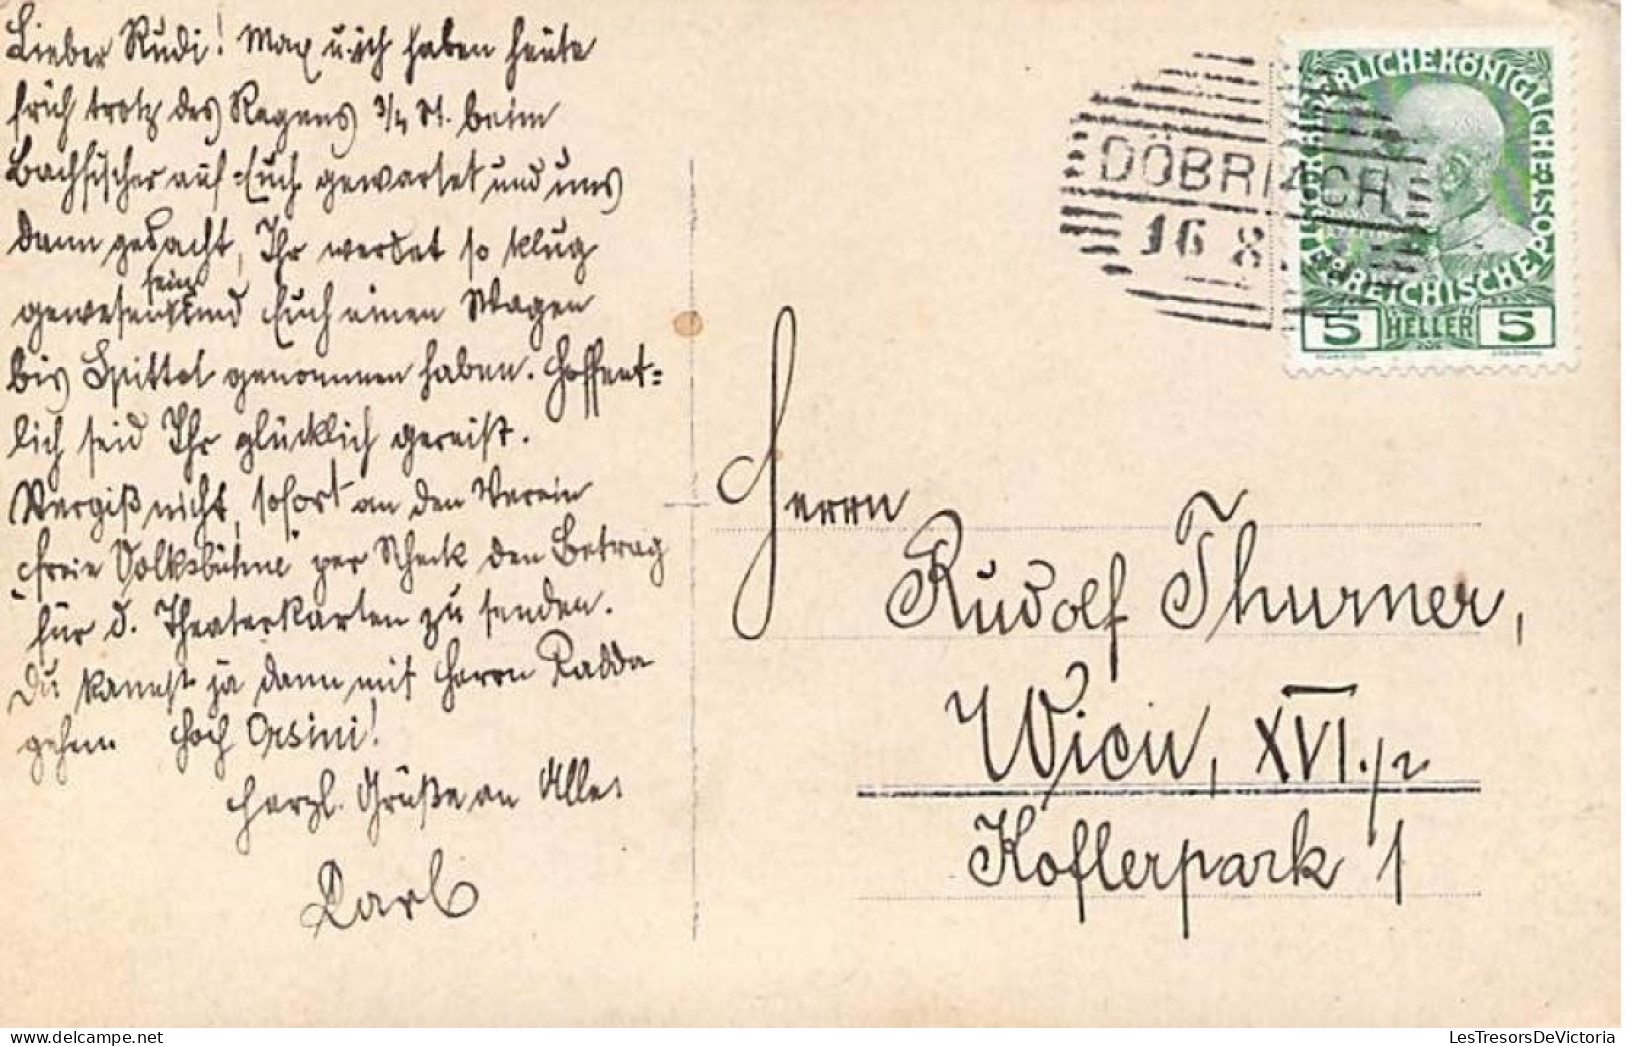 Lieber Rudi! Max u. ich haben heute
früh trotz des Regens 3/4 St. beim
Bachfischer auf Euch gewartet und uns
dann gedacht, Ihr werdet so klug
gewesen sein und Euch einen Wagen
bis Spittal genommen haben. Hoffent=
lich seid Ihr glücklich gereist.
Vergiß nicht, sofort an den Verein
„Freie Volksbühne" per Scheck den Betrag
für d. Theaterkarten zu senden.
Du kannst ja dann mit Herrn Radda
gehen. Hoch Orsini!
Herzl. Grüße an Alle.
Karl
DÖBRIACH
16 8
KAISERLICHE KÖNIGLICHE ÖSTERREICHISCHE POST
5 HELLER 5
Herrn
Rudolf Thurner,
Wien, XVI./2
Koflerpark 1
LesTresorsDeVictoria